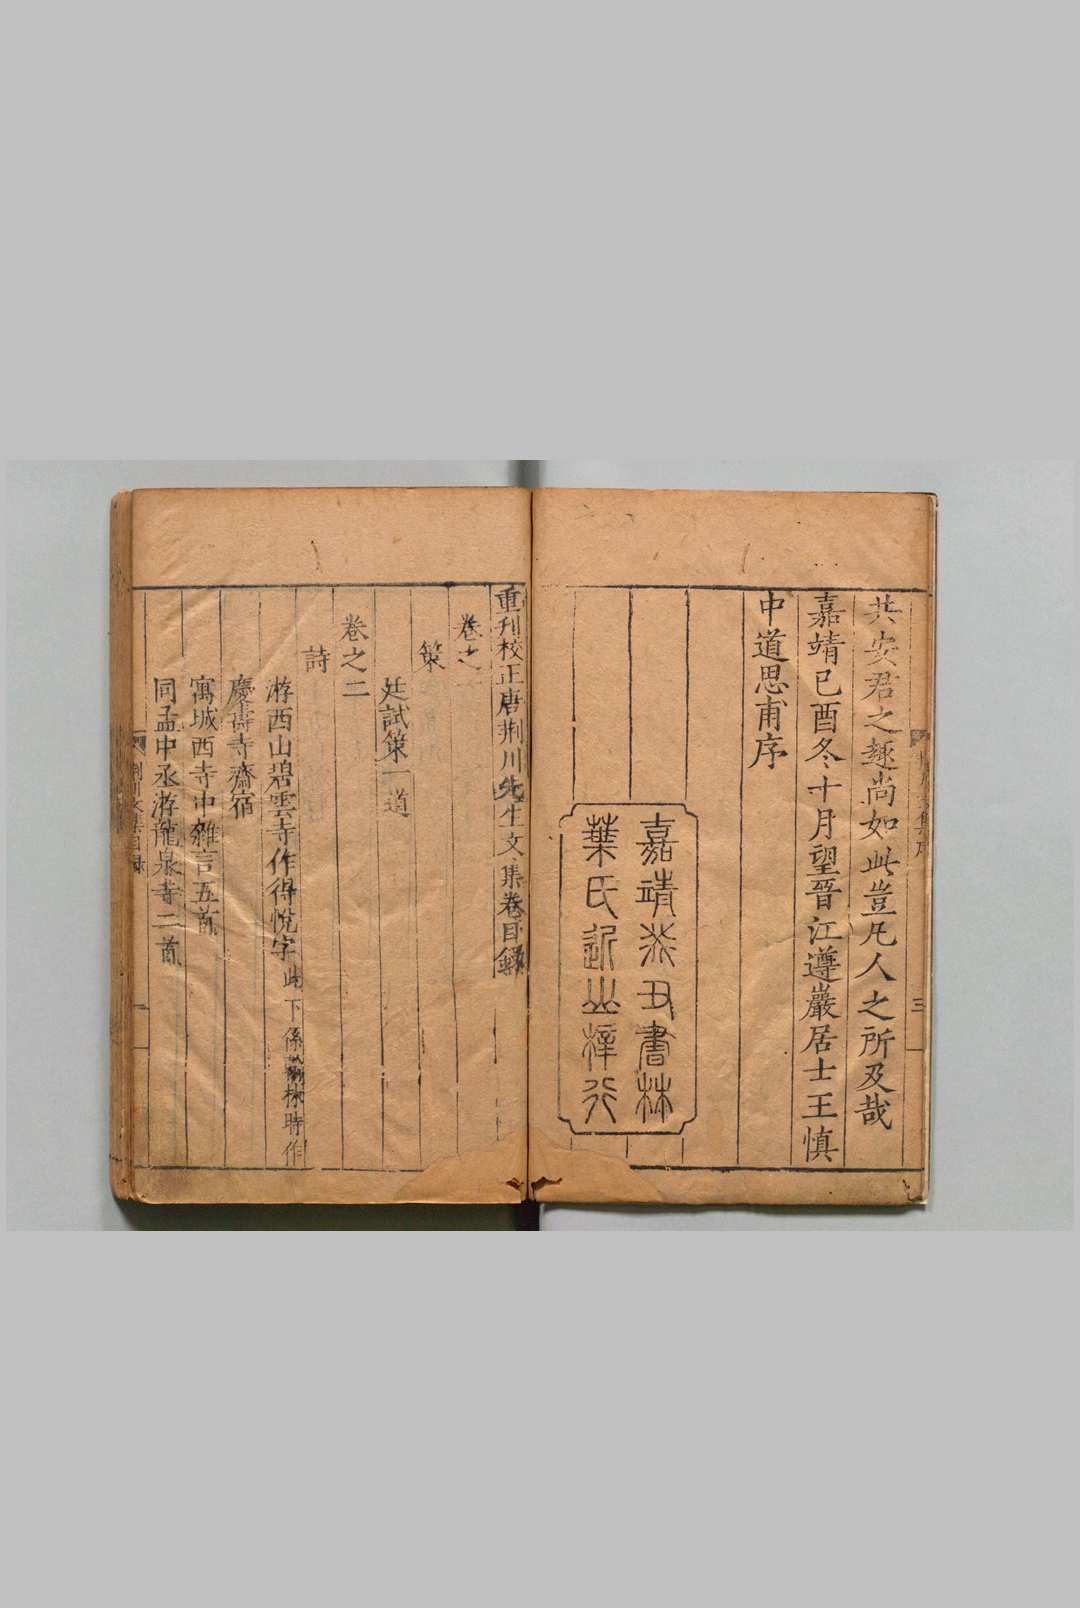 共安君之趣尚如此豈凡人之所及哉
嘉靖己酉冬十月望晉江遵巖居士王慎
中道思甫序
嘉靖癸丑書林
葉氏近山梓行
三
重刊校正唐荆川先生文集卷目錄
卷之
策
廷試策一道
卷之二
詩
游西山碧雲寺作得悅字 此下係翰林時作
慶壽寺齋宿
寓城西寺中雜言五首
同孟中丞游龍泉寺二首
荆川文集目録